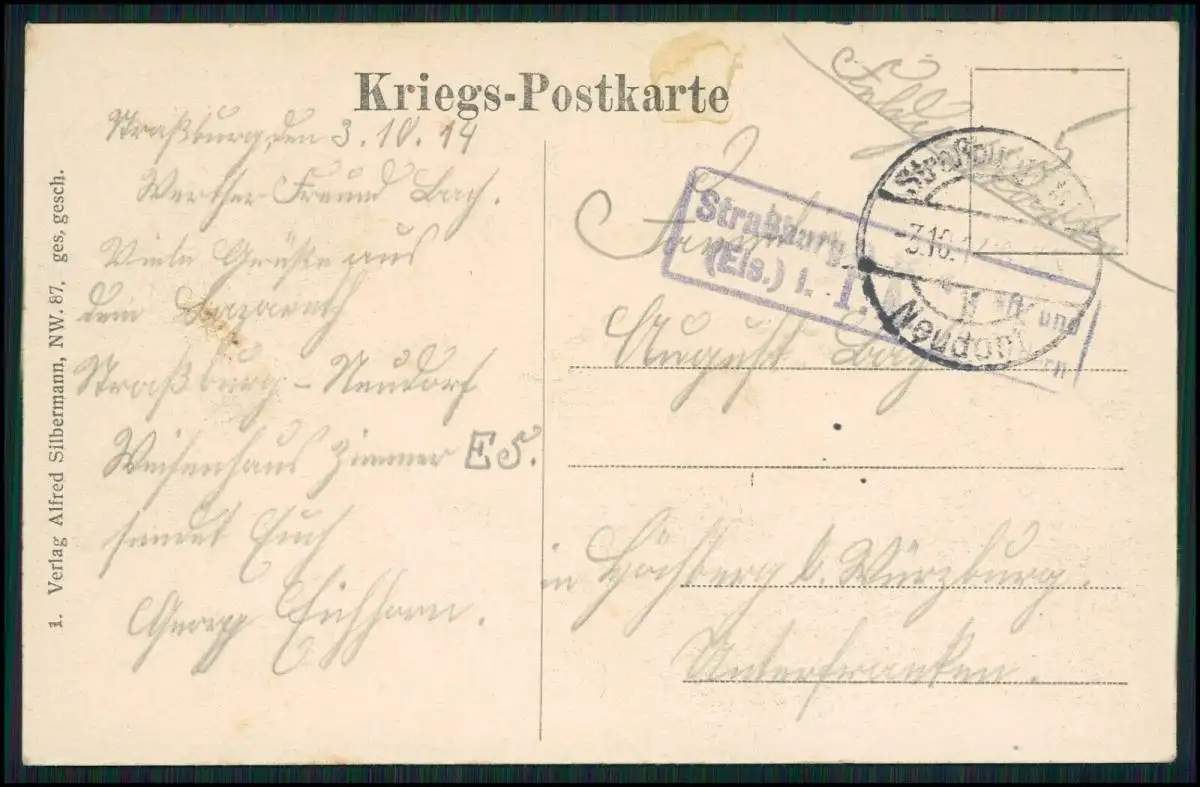 Kriegs-Postkarte
Straßburg, den 3. 10. 14
Werther Freund Bach.
Viele Grüße aus
dem Lazareth
Straßburg - Neudorf
Weisenhaus Zimmer E 5.
sendet Euch
Georg Eichhorn.
Feldpost
August Bach
in Höchberg b. Würzburg.
Unterfranken.
Straßburg
(Els.) i.
und
Straßburg
-3.10.1
Neudorf
1. Verlag Alfred Silbermann, NW. 87. ges. gesch.